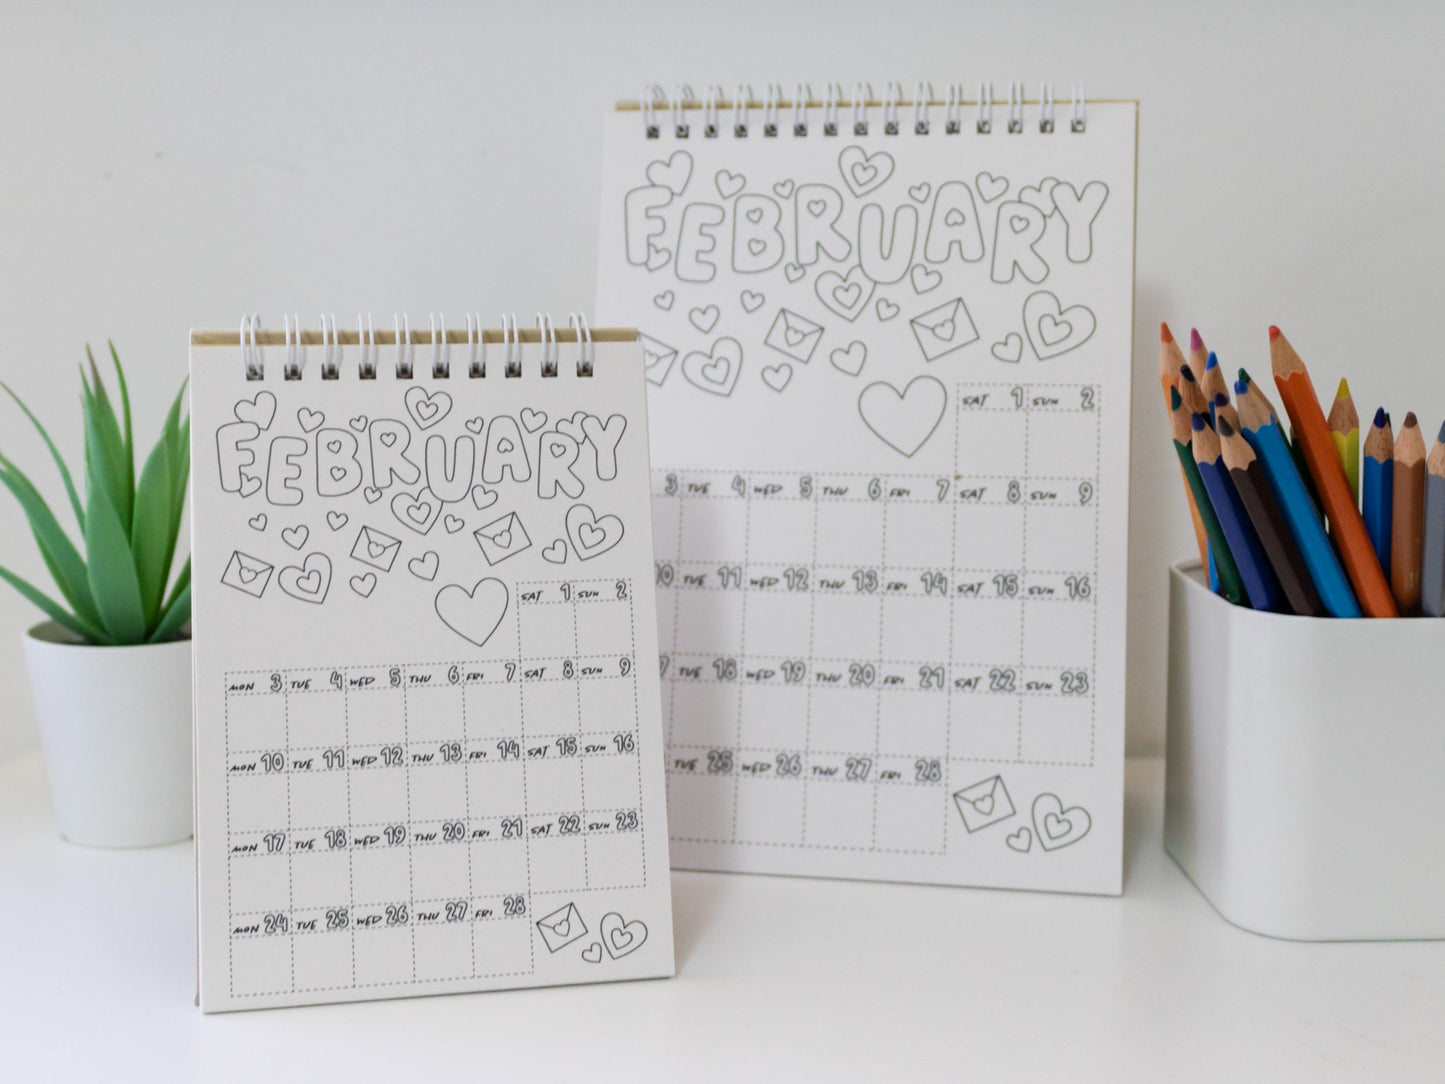 FEBRUARY
SAT 1 SUN 2
MON 3 TUE 4 WED 5 THU 6 FRI 7 SAT 8 SUN 9
MON 10 TUE 11 WED 12 THU 13 FRI 14 SAT 15 SUN 16
MON 17 TUE 18 WED 19 THU 20 FRI 21 SAT 22 SUN 23
MON 24 TUE 25 WED 26 THU 27 FRI 28
FEBRUARY
SAT 1 SUN 2
3 TUE 4 WED 5 THU 6 FRI 7 SAT 8 SUN 9
10 TUE 11 WED 12 THU 13 FRI 14 SAT 15 SUN 16
7 TUE 18 WED 19 THU 20 FRI 21 SAT 22 SUN 23
TUE 25 WED 26 THU 27 FRI 28